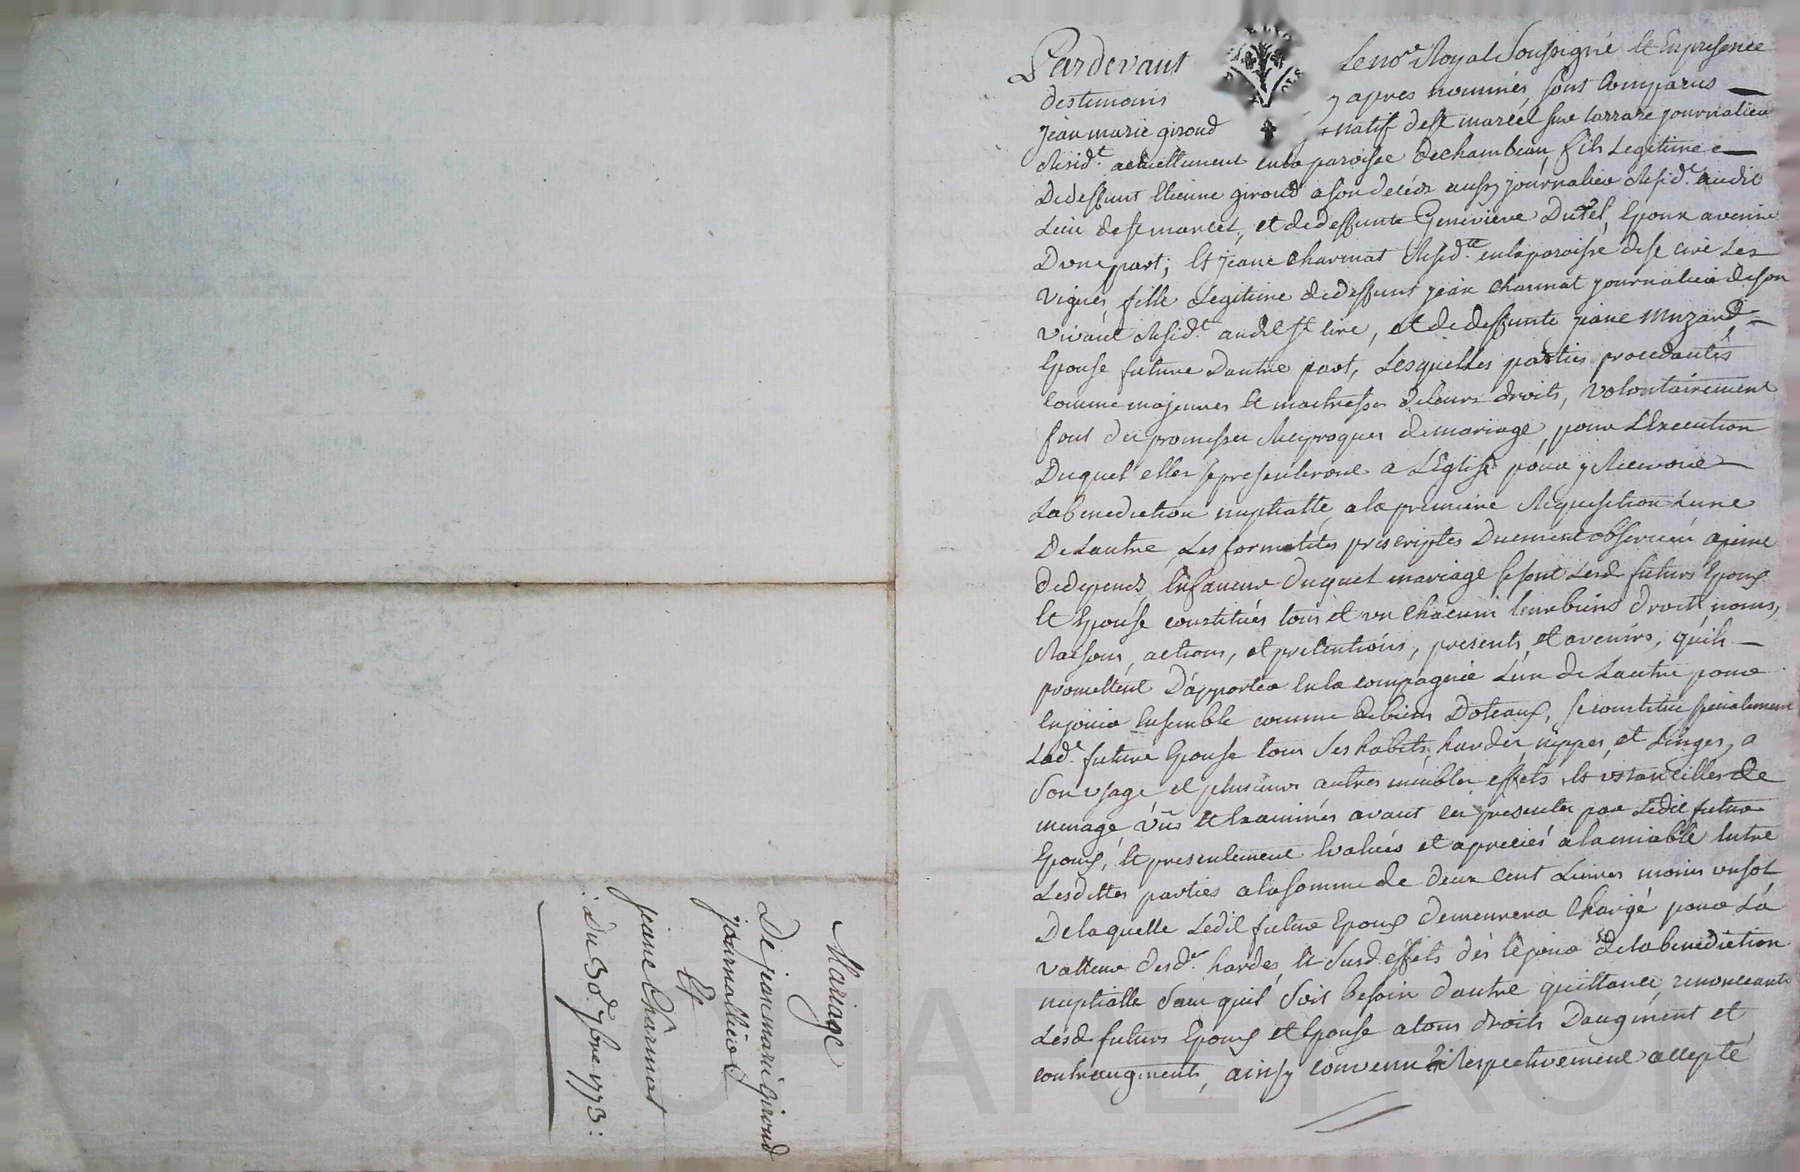 Mariage
De jean marie giroud
journallier
Et
jeane Charmat
Du 30.e 7bre 1773:
Pardevant Le nore Royal Soussigné Et En presence
des temoins y apres nommés sont Comparus
jean marie giroud natif de st marcel sur tarrare journalier
Resid.t actuellement en la paroisse de chambeau, fils Legitime
De deffunt Etienne giroud a son decéds aussy journalier Resid.t audit
Lieu de st marcel, et de deffunte Genevieve Dutel Epoux avenir
D'une part; Et jeane Charmat Resid.te en la paroisse de st ciré Les
vignes fille Legitime de deffunt jean Charmat journalier de son
vivant Resid.t audit st ciré, et de deffunte jeane Muzard
Epouse future D'autre part, Lesquelles parties procedantes
comme majeures Et maitresses de leurs droits, volontairement
font des promesses Reciproques de mariage, pour L'Execution
Duquel elles se presenteront a L'Eglise pour y Recevoir
La benediction nuptialle, a la premiere Requisition L'une
De L'autre, Les formalités prescriptes Duement observées a peine
de depends, En faveur duquel mariage se sont Lesd. futurs Epoux
Et Epouse constitués tous et un chacuns leurs biens droits, noms,
Raisons, actions, et pretentions, presents, et avenirs, quils
promettent D'apporter En la compagnie L'un de L'autre pour
En jouir Ensemble comme de biens Doteaux, se constitue specialement
Lad.e future Epouse tous ses habits, hardes nippes, et Linges, a
son usage et plusieurs autres meubles effets et ustancilles de
menage vûs Et Examinés avant ces presentes par Ledit futur
Epoux, Et presentement Evalués et apreciés a lamiable Entre
Lesdittes parties a la somme de deux cent Livres moins un sol
De laquelle Ledit futur Epoux demeurera Chargé pour La
valleur desd.es hardes, Et susd. effets dès le jour de la benediction
nuptialle sans quil soit besoin d'autre quittance, renonceants
Lesd. futurs Epoux et Epouse a tous droits D'augment et
contreaugments, ainsy convenu Et Respectivement accepté